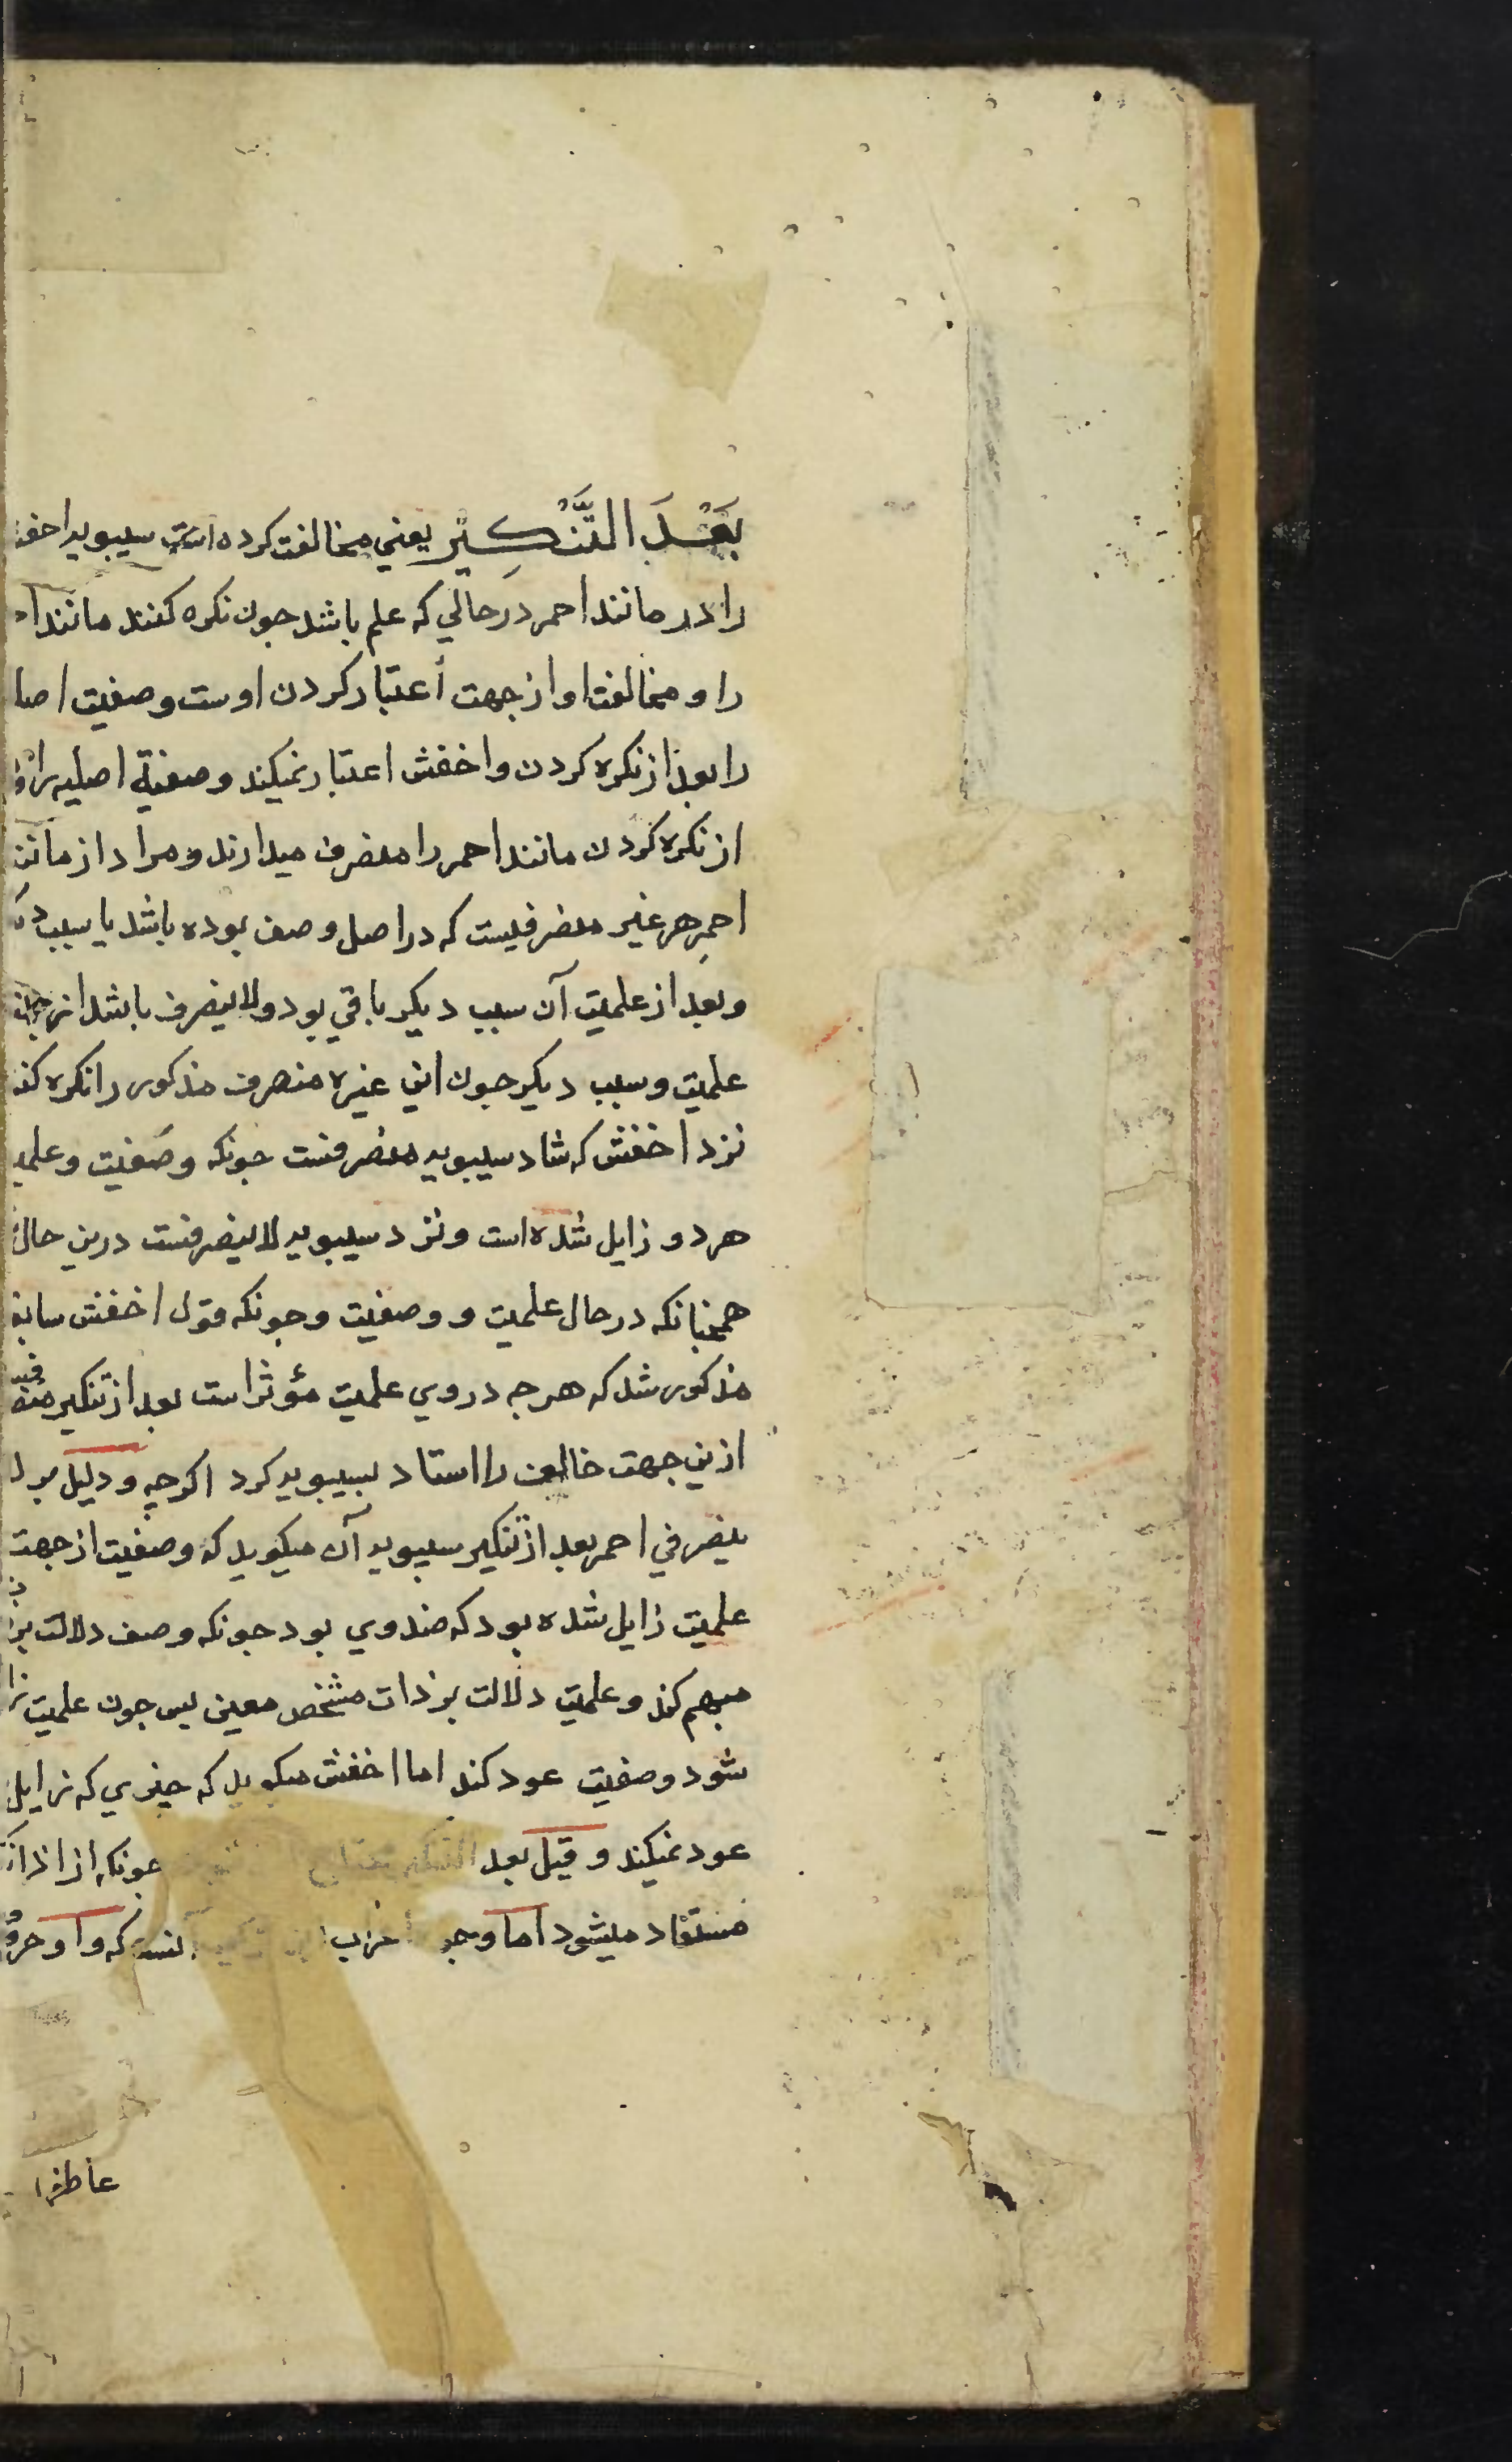 بَعْدَ التَّنْكِيْرِ يعني مخالفت كرده است سيبويه اخف
را در مانند احمر در حالي كه علم باشد جون نكره كنند مانند
را و مخالفت او از جهت أعتبار كردن اوست وصفيت اصل
را بعد از نكره كردن و اخفش اعتبار نميكند وصفية اصليه را
از نكره كردن مانند احمر را منصرف ميدارند و مراد از مانند
احمرِ هر غير منصرفيست كه در اصل وصف بوده باشد با سبب
وبعد از علميت آن سبب ديكر باقي بود ولا ينصرف باشد از جهت
علميت و سبب ديكر جون اين غيره منصرف مذكور را نكره كند
نزد اخفش كه شاد سيبويه منصرفست جونكه وصفيت و علم
هر دو زايل شده است و نزد سيبويه لا ينصرفست درين حال
همجنانكه در حال علميت و وصفيت و جونكه قول اخفش سابق
مذكور شد كه هرجه در وي علميت مؤثر است بعد از تنكير
ازين جهت خالف را استاد بسيبويه كرد اكرجه و دليل بر
ينصرفي احمر بعد از تنكير سيبويه آن ميكويد كه وصفيت از جهت
علميت زايل شده بود كه ضد وي بود جونكه وصف دلالت بر
مبهم كند و علميت دلالت بر ذات مشخص معين بس جون علميت
شود وصفيت عود كند اما اخفش ميكويد كه جيزي كه زايل
عود نميكند و قيل بعد التنكير جونكه از
مستفاد ميشود اما وجه كه واو حرو
عاطفه